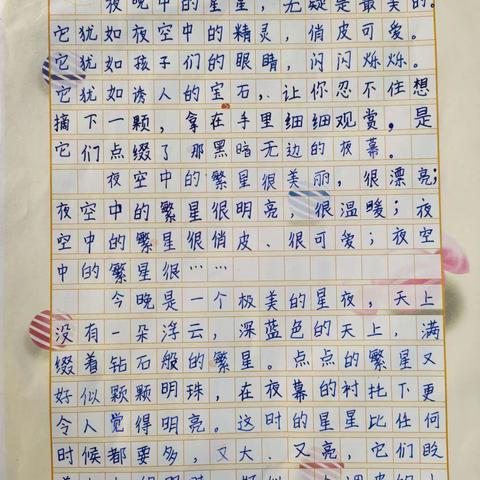 夜晚中的星星，无疑是最美的。
它犹如夜空中的精灵，俏皮可爱。
它犹如孩子们的眼睛，闪闪烁烁。
它犹如诱人的宝石，让你忍不住想
摘下一颗，拿在手里细细观赏。是
它们点缀了那黑暗无边的夜幕。
夜空中的繁星很美丽，很漂亮；
夜空中的繁星很明亮，很温暖；夜
空中的繁星很俏皮、很可爱；夜空
中的繁星很……
今晚是一个极美的星夜，天上
没有一朵浮云，深蓝色的天上，满
缀着钻石般的繁星。点点的繁星又
好似颗颗明珠，在夜幕的衬托下更
令人觉得明亮。这时的星星比任何
时候都要多，又大、又亮，它们眨